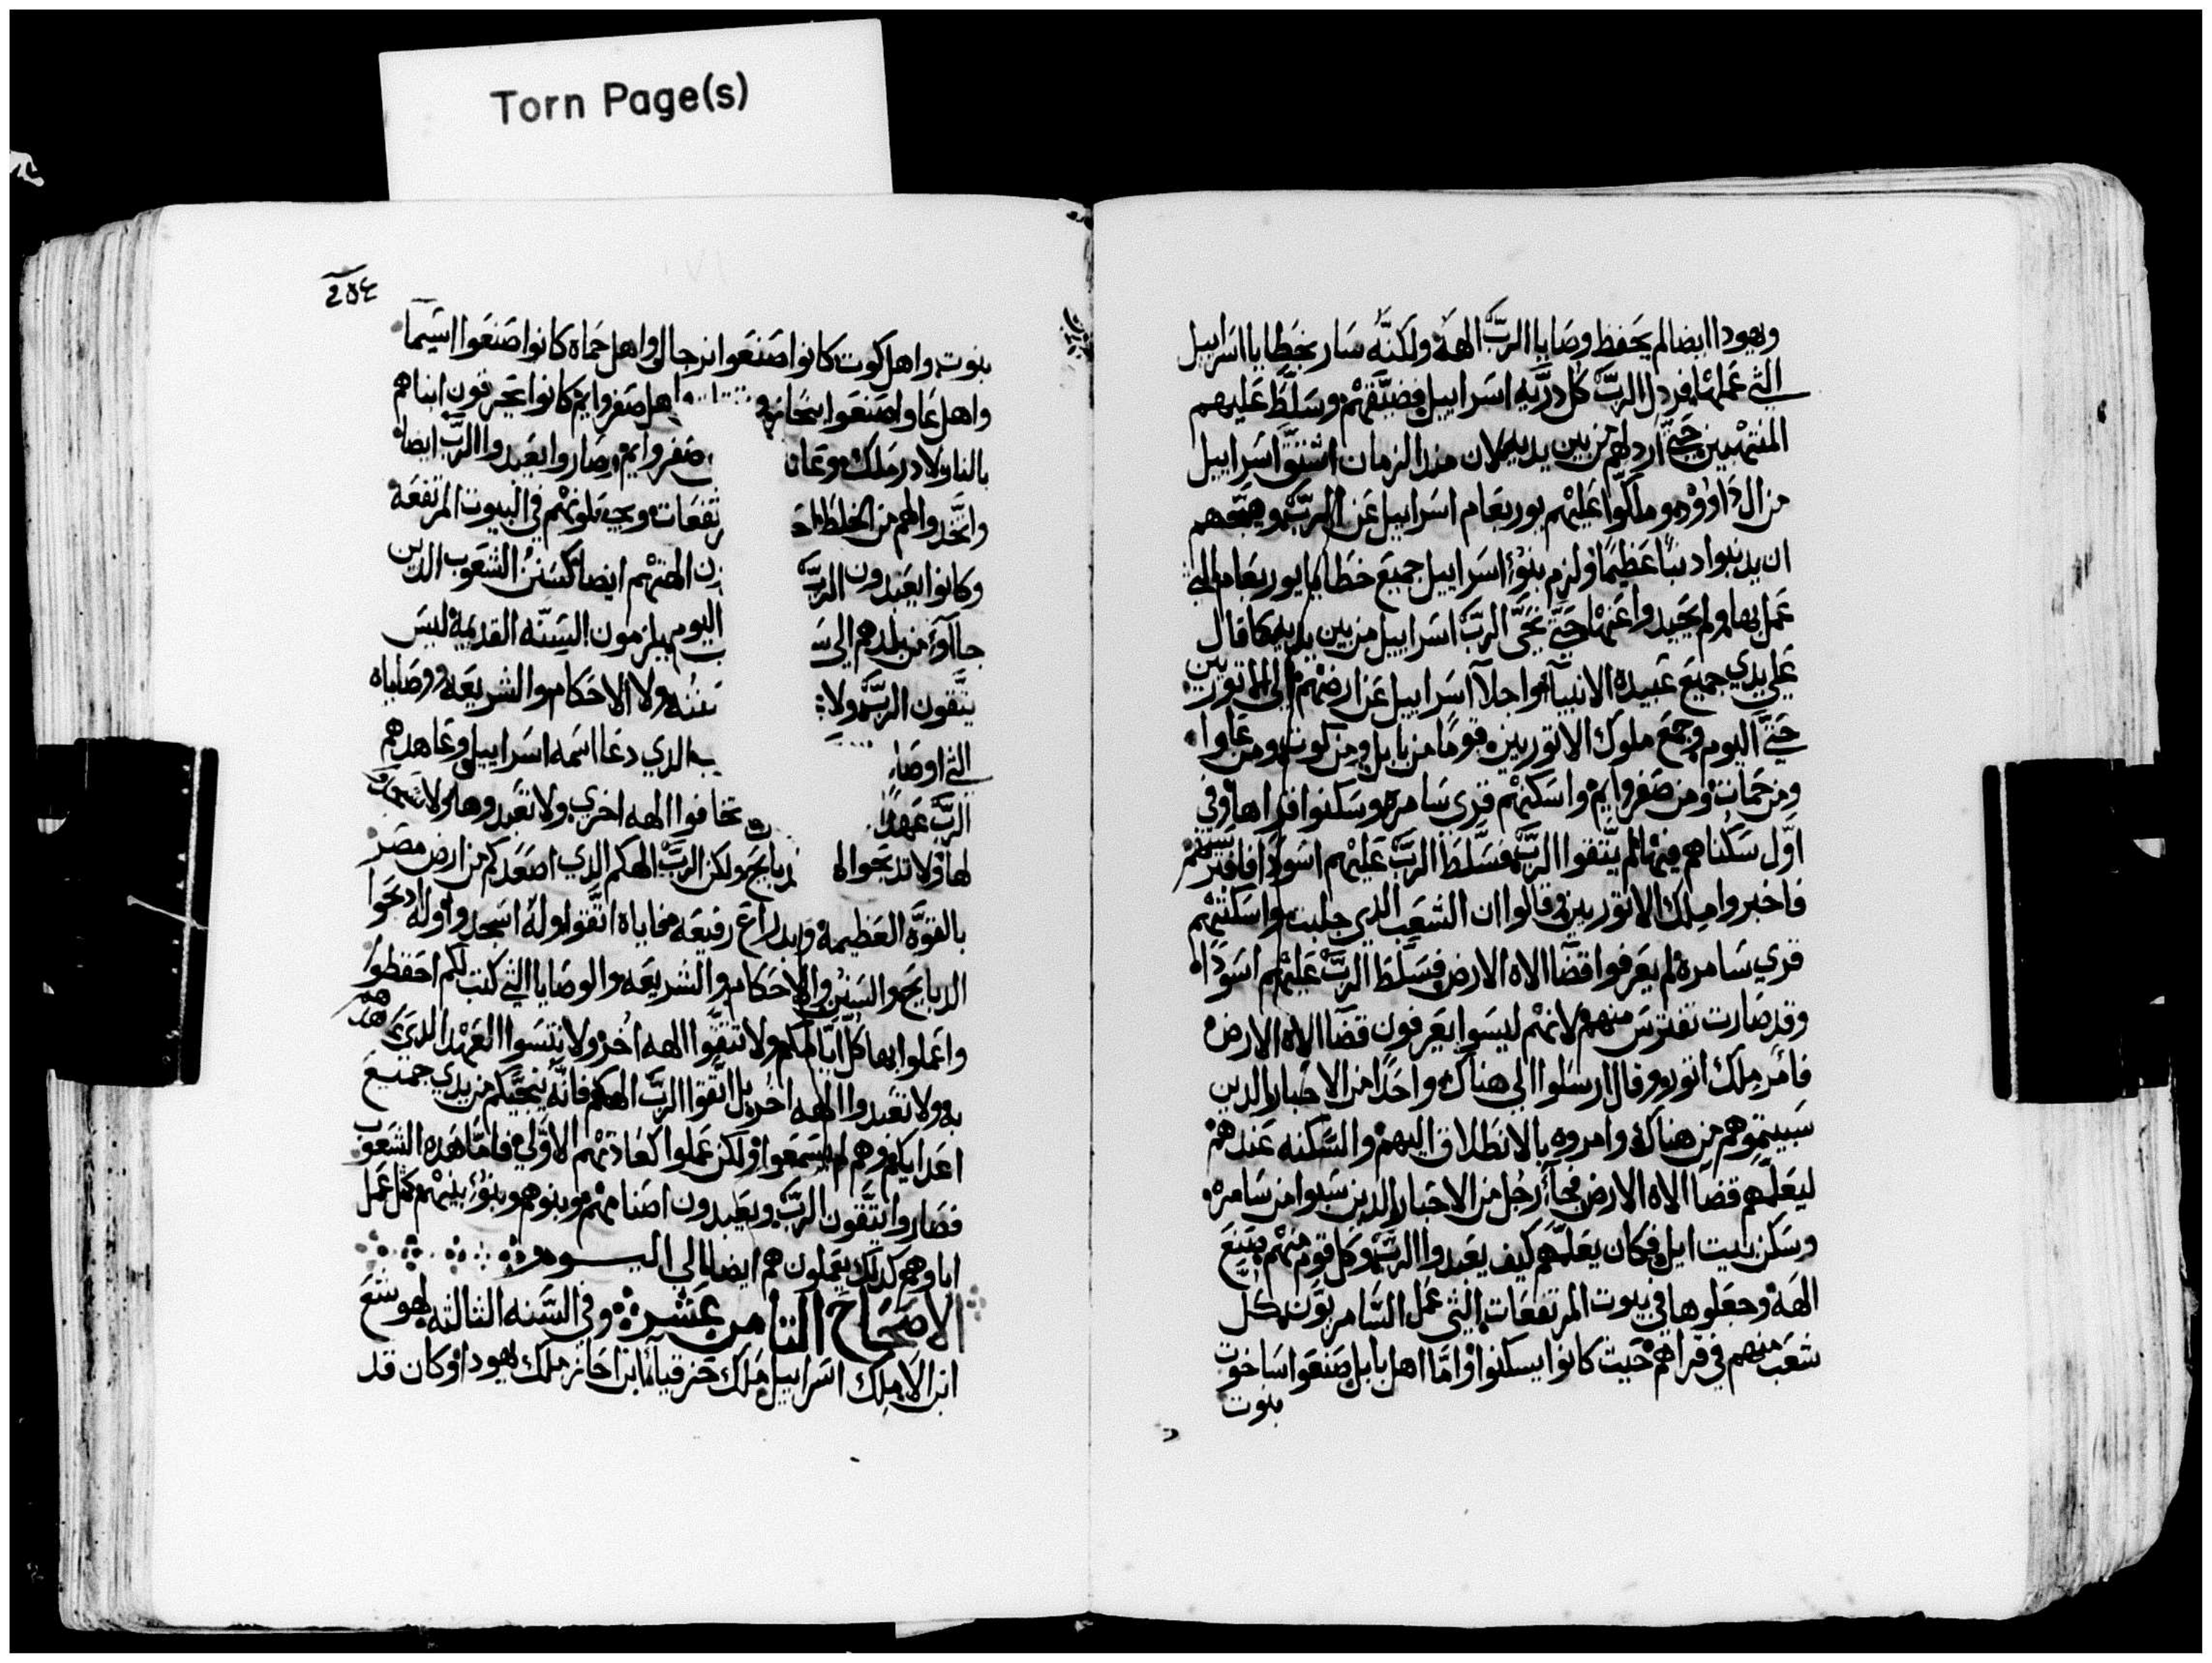 Torn Page(s)
ويهودا ايضا لم يحفظ وصايا الرب الهه ولكنه سار بخطايا اسراييل
التي عملها فردل الرب كل دريه اسراييل فضيقهم وسلط عليهم
المنتهبين حتي اردلهم من بين يديه لان مند الزمان اشتق اسراييل
من ال داوود وملكوا عليهم يوربعام اسراييل عن الرب وهيجهم
ان يدنبوا دنبا عظيما ولزم بنو اسراييل جميع خطايا يوربعام التي
عمل بها ولم يحيدوا عنها حتي نحي الرب اسراييل من بين يديه كما قال
علي يدي جميع عبيده الانبيآ واجلآ اسراييل عن ارضهم الي الاتوريين
حتي اليوم وجمع ملوك الاتوريين قوما من بابل ومن كوت ومن عاوا
ومن حمات ومن صفروايم واسكنهم قري سامره وسكنوا قراها وفي
اول سكناهم فيها لم يتقوا الرب فسلط الرب عليهم اسودا فافترستهم
فاخبروا ملك الاتوريين وقالوا ان الشعب الدي جلبت واسكنتهم
قري سامره لم يعرفوا قضآ الاه الارض فسلط الرب عليهم اسودا
وقد صارت تفترس منهم لانهم ليسوا يعرفون قضآ الاه الارض
فامر ملك اتور وقال ارسلوا الي هناك واحدا من الاحبار الدين
سبيتموهم من هناك وامروه بالانطلاق اليهم والسكنه عندهم
ليعلمهم قضآ الاه الارض فجآ رجل من الاحبار الدين سبوا من سامره
وسكن بيت ايل فكان يعلمهم كيف يعبدوا الرب وكل قوم منهم صنع
الهه وجعلوها في بيوت المرتفعات التي عمل السامريون كل
شعب منهم في قراهم حيت كانوا يسكنوا واما اهل بابل صنعوا ساخوت
بنوت
بنوت واهل كوت كانوا صنعوا نرجال واهل حماه كانوا صنعوا اشيما
واهل عاوا صنعوا واهل صفروايم كانوا يحرقون ابناهم
بالنار لادرملك وعنا صفروايم وصاروا يعبدوا الرب ايضا
واتخدوا لهم من الخلط تفعات ويجعلونهم في البيوت المرتفعه
وكانوا يعبدون الرب الهتهم ايضا كسنن الشعوب الدين
جاآو من بلدهم الي اليوم يلزمون السنه القديمه ليس
يتقون الرب ولا سننه ولا الاحكام والشريعه ووصاياه
التي اوصا الدي دعا اسمه اسراييل وعاهدهم
الرب عهدا تخافوا الهه اخري ولا تعبدوها ولا تسجدو
لها ولا تدبحوا لها دبايح ولكن الرب الهكم الدي اصعدكم من ارض مصر
بالقوه العظيمه وبدراع رفيعه فاياه اتقوا وله اسجدوا وله ادبحوا
الدبايح والسنن والاحكام والشريعه والوصايا التي كتب لكم احفظوا
واعملوا بها كل ايامكم ولا تتقوا الهه اخر ولا تنسوا العهد الدي عاهدهم
به ولا تعبدوا الهه اخر بل اتقوا الرب الهكم فانه ينجيكم من يدي جميع
اعدايكم وهم لم يسمعوا ولكن عملوا كعادتهم الاولي فاما هده الشعوب
فصاروا يتقون الرب ويعبدون اصنامهم وبنوهم وبنو بنيهم كمثل عمل
اباوهم كدلك يعملون هم ايضا الي اليوم
الاصحاح التامن عشر وفي السنه التالته لهوشع
ابن الا ملك اسراييل ملك حزقيا ابن احاز ملك يهودا وكان قد